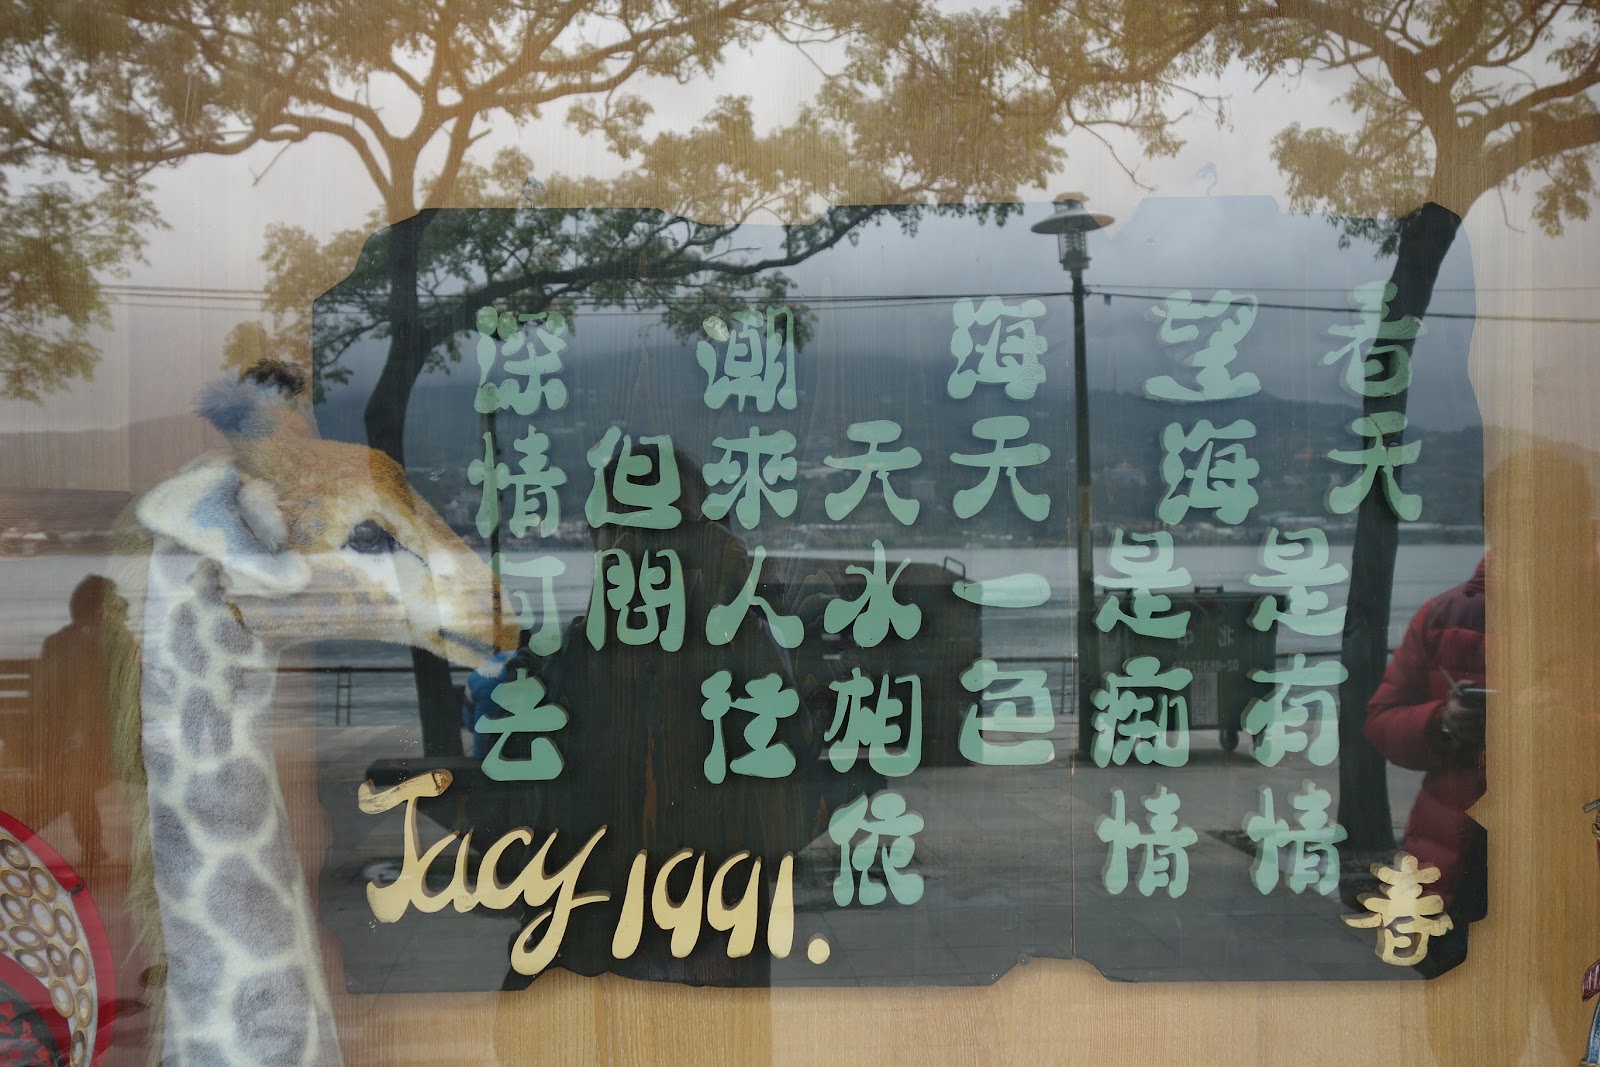 看天
是有情
望海
是痴情
海天一色
天水相依
潮來人往
但問
深情何去
春
Jacy 1991.